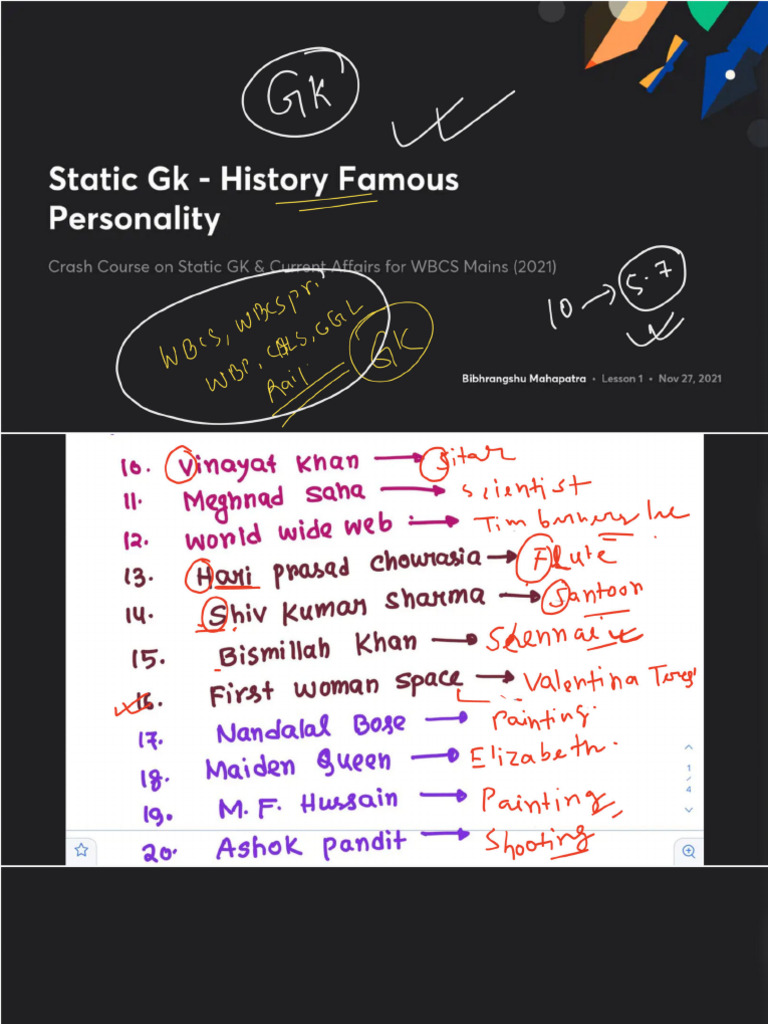 GK
Static Gk - History Famous
Personality
Crash Course on Static GK & Current Affairs for WBCS Mains (2021)
10 → 5.7
WBCS, WBCS Pri.
WBP, CHLS, CGL
Rail
GK
Bibhrangshu Mahapatra • Lesson 1 • Nov 27, 2021
10. Vinayat Khan → Sitar
11. Meghnad Saha → Scientist
12. World wide web → Tim
13. Hari prasad Chowrasia → Flute
14. Shiv Kumar Sharma → Santoon
15. Bismillah Khan → Shennai
16. First woman space → Valentina
17. Nandalal Bose → Painting.
18. Maiden Queen → Elizabeth.
19. M.F. Hussain → Painting
20. Ashok pandit → Shooting
1
/
4